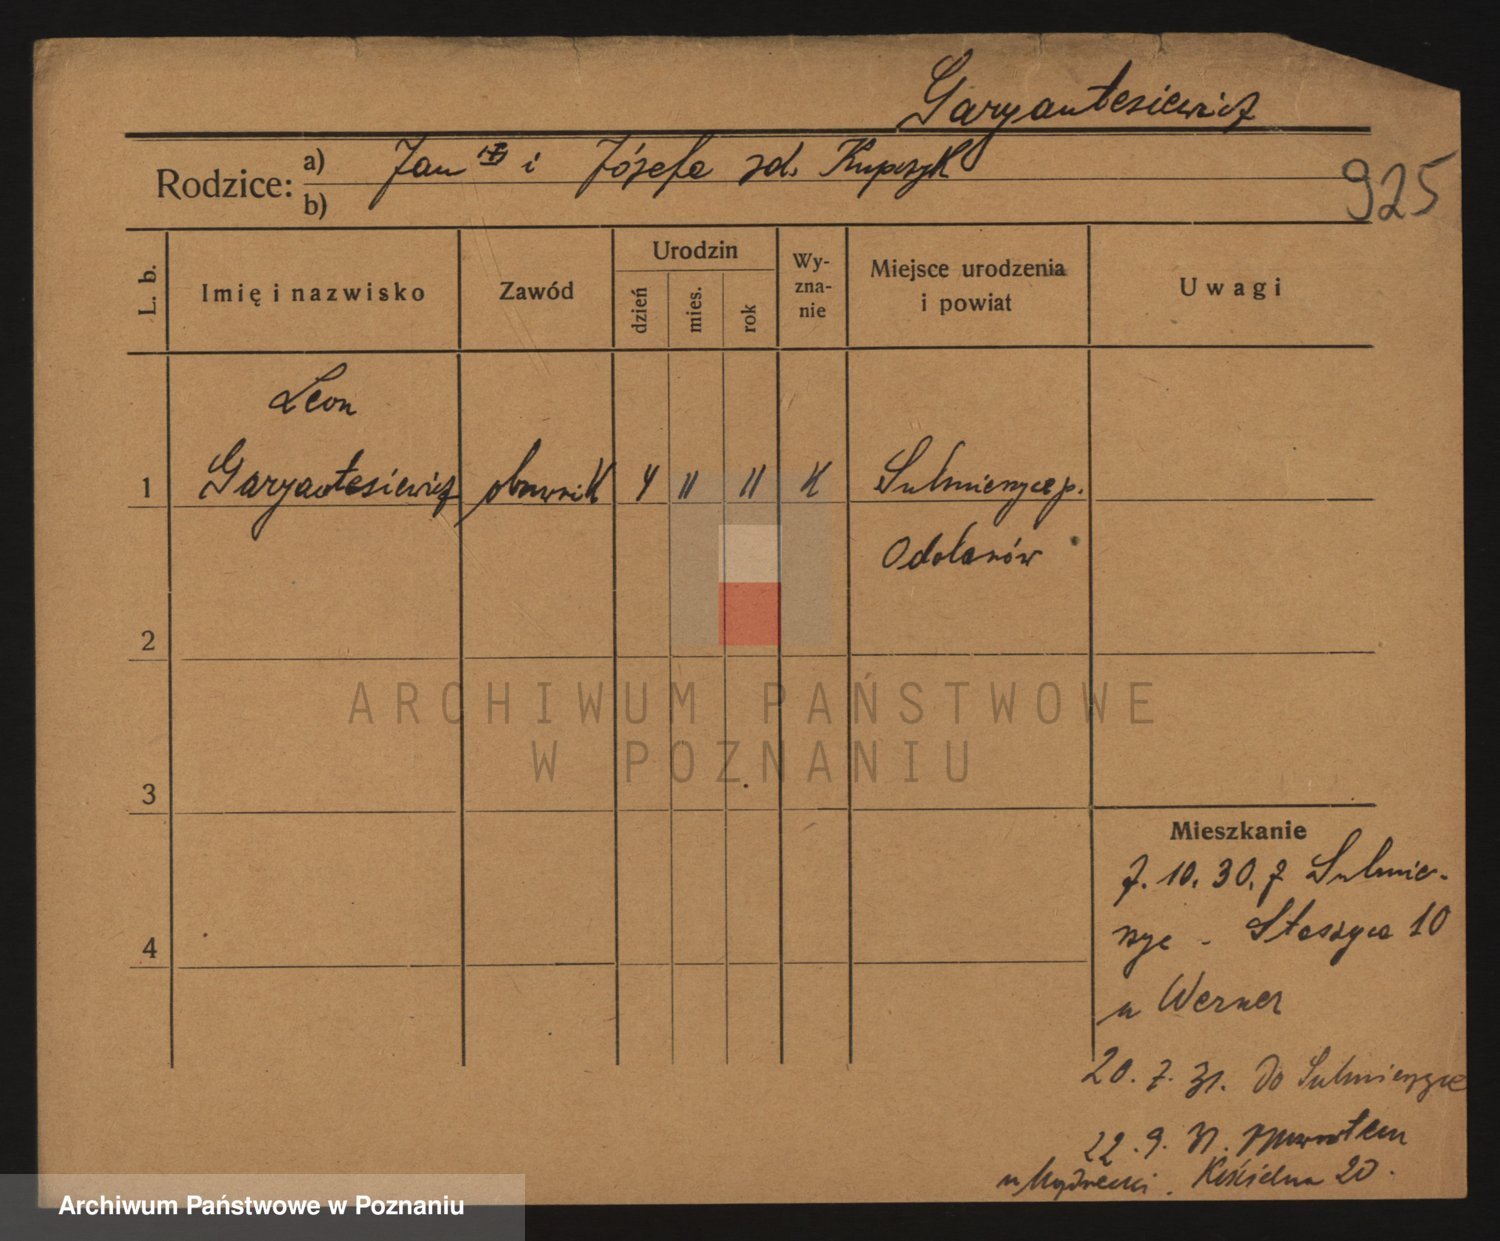 Garyantesiewicz
Rodzice: a) Jan i Józefa zd. Kupczyk
b)
925
L. b.
Imię i nazwisko
Zawód
Urodzin
dzień
mies.
rok
Wy-
zna-
nie
Miejsce urodzenia
i powiat
Uwagi
Leon
1 Garyantesiewicz obuwnik 4 11 11 K Sulmierzyce p.
Odolanów
2
3
4
Mieszkanie
7. 10. 30. z Sulmie-
rzyc - Staszyca 10
u Werner
20. 7. 31. do Sulmierzyce
22. 9. 31.
u Kościelna 20.
ARCHIWUM PAŃSTWOWE
W POZNANIU
Archiwum Państwowe w Poznaniu